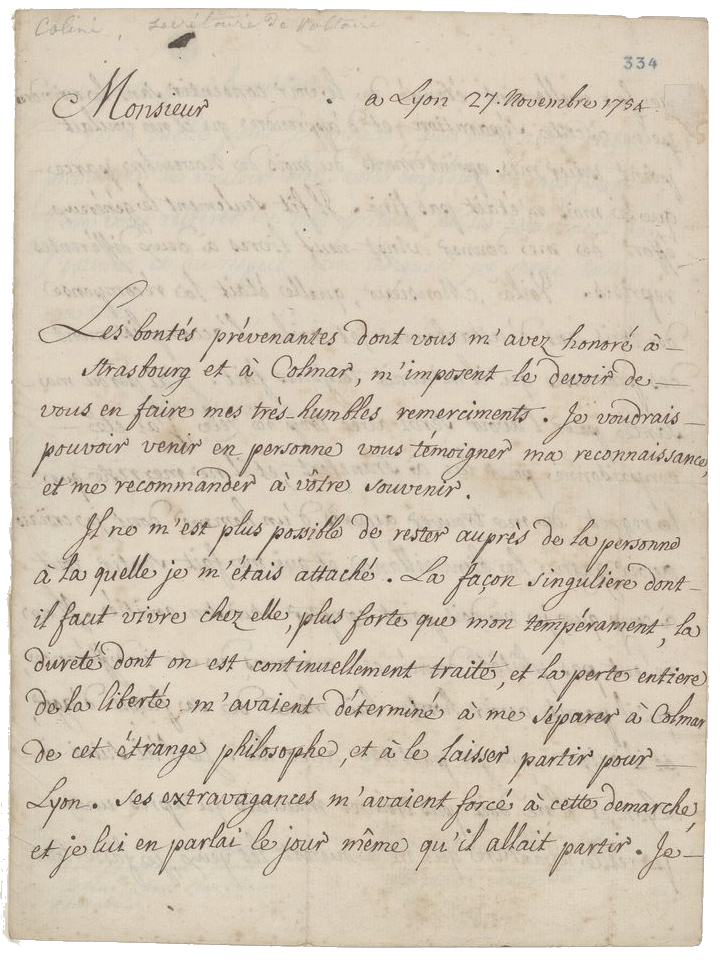 Colini, Secrétaire de Voltaire
334
Monsieur
a Lyon 27. Novembre 1754.
Les bontés prévenantes dont vous m'avez honoré à
Strasbourg et à Colmar, m'imposent le devoir de
vous en faire mes très-humbles remerciments. Je voudrais
pouvoir venir en personne vous témoigner ma reconnaissance,
et me recommander à vôtre souvenir.
Il ne m'est plus possible de rester auprès de la personne
à la quelle je m'étais attaché. La façon singulière dont
il faut vivre chez elle, plus forte que mon tempérament, la
dureté dont on est continuellement traité, et la perte entiere
de la liberté m'avaient déterminé à me séparer à Colmar
de cet étrange philosophe, et à le laisser partir pour
Lyon. Ses extravagances m'avaient forcé à cette demarche,
et je lui en parlai le jour même qu'il allait partir. Je